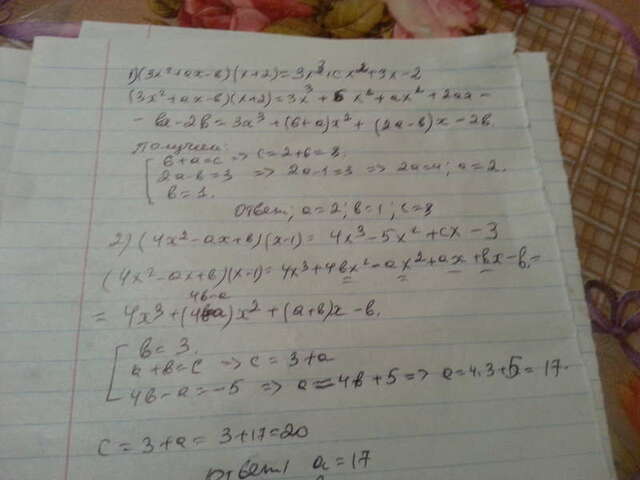 1) (3x²+ax-в)(x+2)=3x³+cx²+3x-2
(3x²+ax-в)(x+2)=3x³+6x²+ax²+2ax-
-вx-2в=3x³+(6+a)x²+(2a-в)x-2в.
Получим:
6+a=c => c=2+6=8.
2a-в=3 => 2a-1=3 => 2a=4; a=2.
в=1.
Ответ; a=2; в=1; c=8
2) (4x²-ax+в)(x-1)=4x³-5x²+cx-3
(4x²-ax+в)(x-1)=4x³+4вx²-ax²+ax+вx-в=
4в-a
=4x³+( )x²+(a+в)x-в.
в=3.
a+в=c => c=3+a
4в-a=-5 => a=4в+5 => a=4.3+5=17.
c=3+a=3+17=20
Ответ a=17